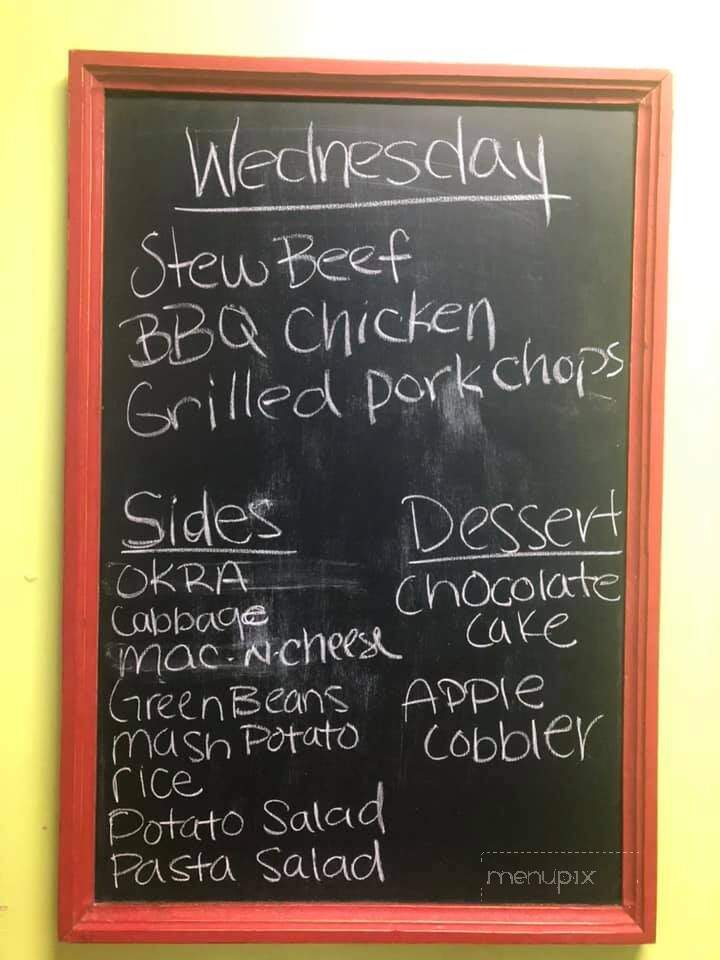 Wednesday
Stew Beef
BBQ Chicken
Grilled pork chops
Sides
OKRA
Cabbage
Mac-N-cheese
Green Beans
mash Potato
rice
Potato Salad
Pasta Salad
Dessert
Chocolate
cake
Apple
cobbler
menupix